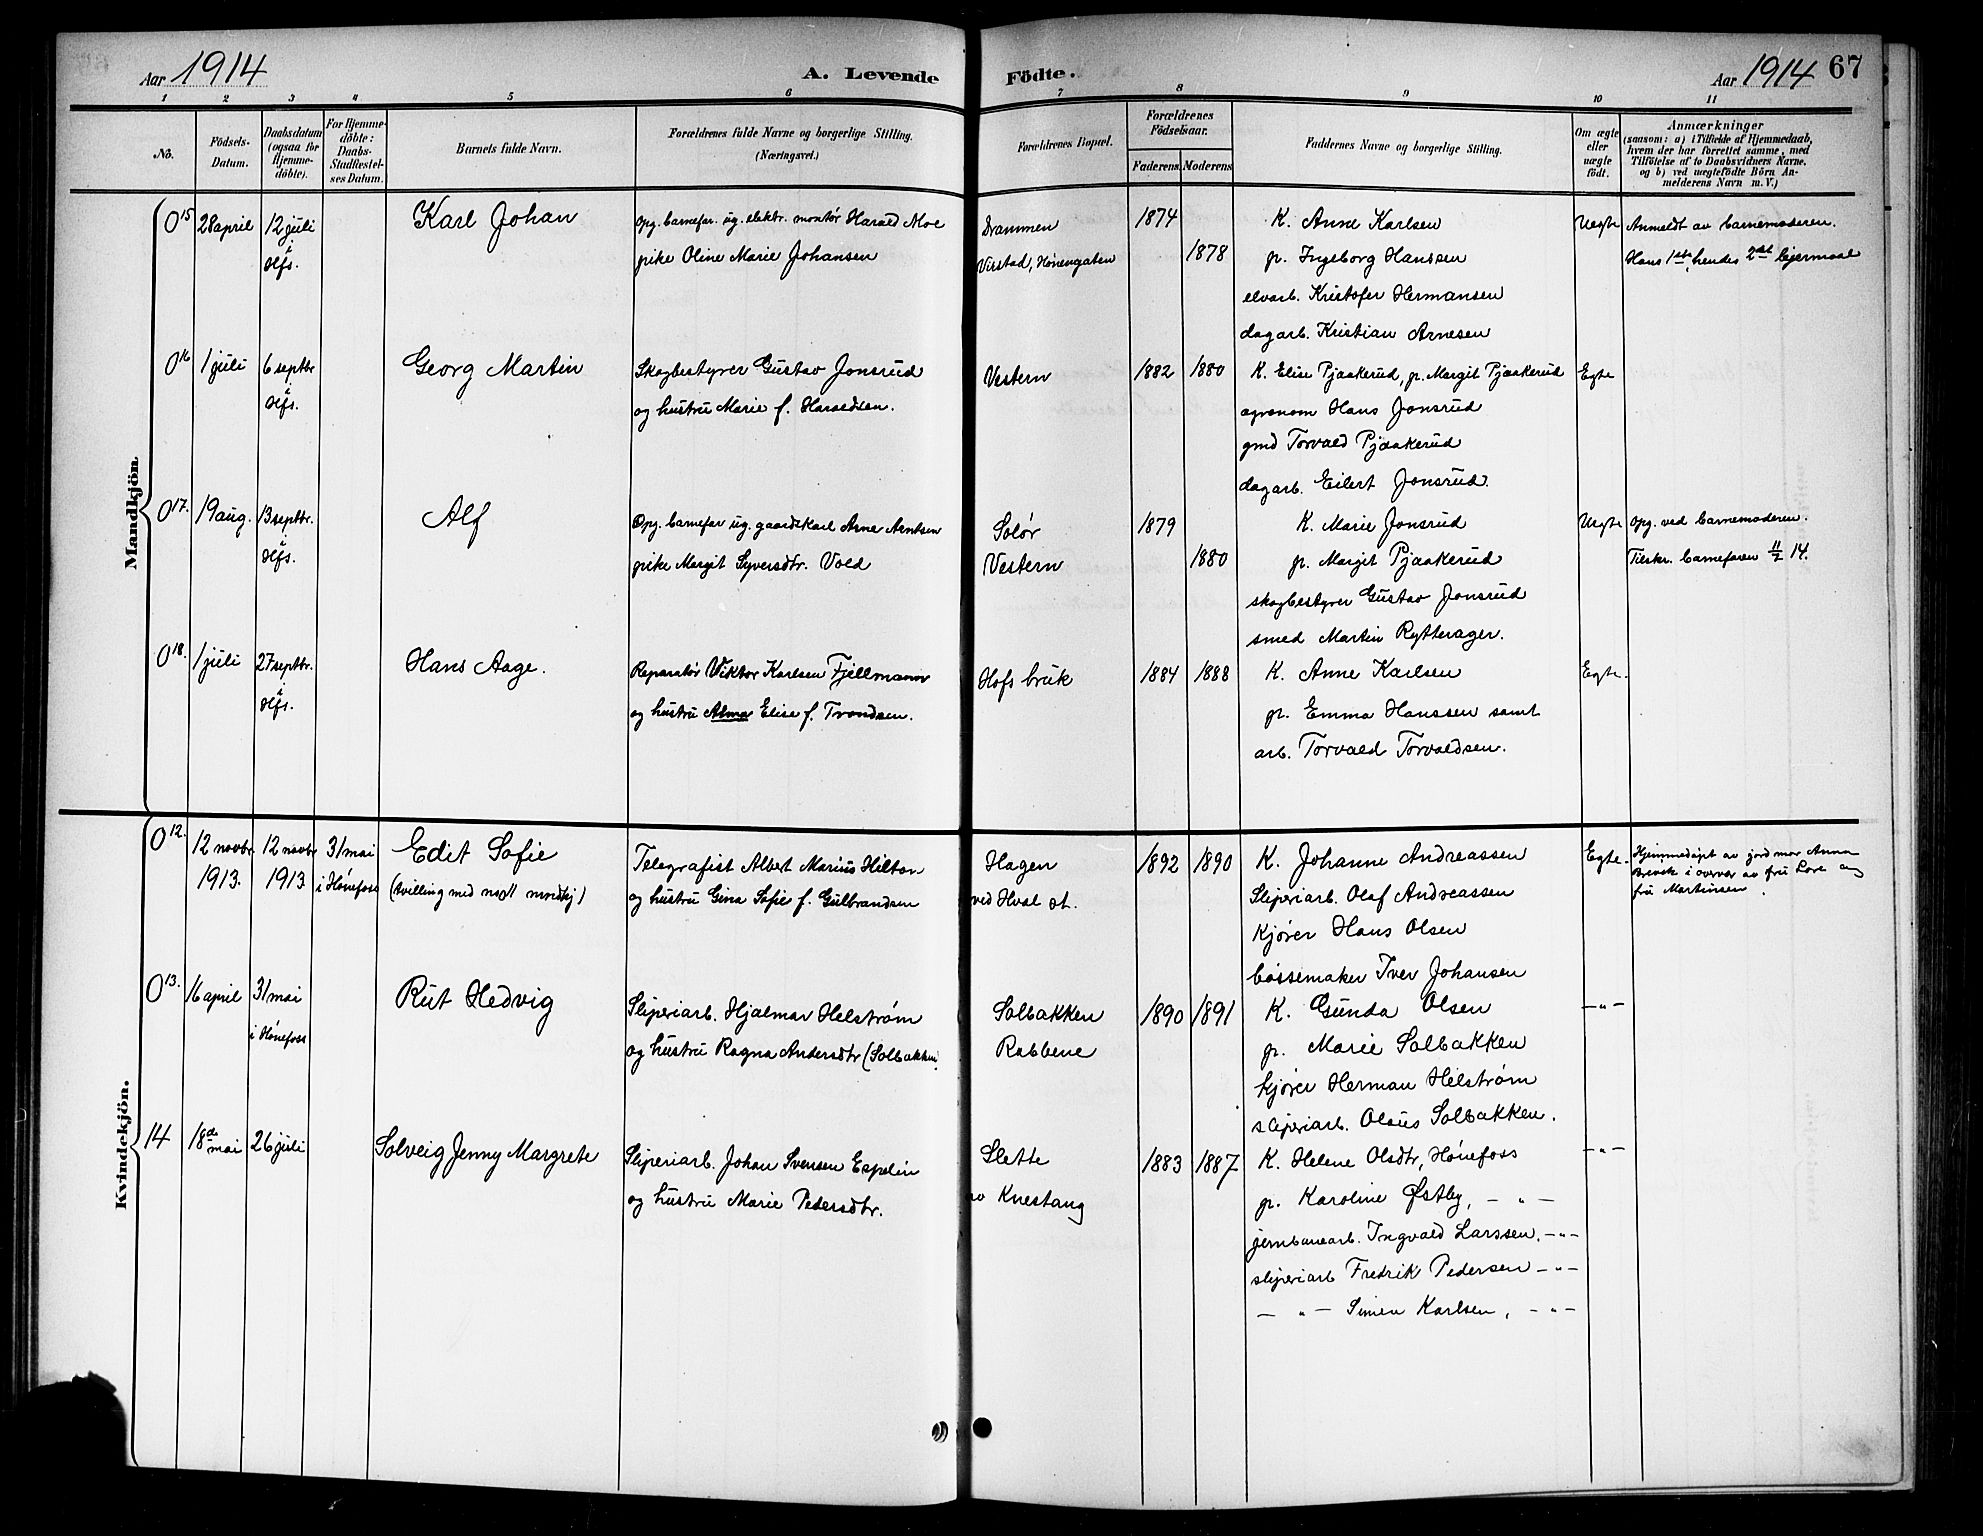 Aar 1914
A. Levende
Födte.
Aar 1914 67
1 2 3 4 5 6 7 8 9 10 11
No.
Födsels-
Datum.
Daabsdatum
(ogsaa for
Hjemme-
döbte).
For Hjemme-
döbte:
Daabs-
Stadfæstel-
ses Datum.
Barnets fulde Navn.
Forældrenes fulde Navne og borgerlige Stilling.
(Næringsvei.)
Forældrenes Bopæl.
Forældrenes
Födselsaar.
Faderens. Moderens.
Faddernes Navne og borgerlige Stilling.
Om ægte
eller
uægte
født.
Anmærkninger
(saasom: a) i Tilfælde af Hjemmedaab,
hvem der har forrettet samme, med
Tilföielse af to Daabsvidners Navne.
og b) ved uægtefödte Börn An-
melderens Navn m. V.)
Mandkjön.
O 15 28 april 12 juli Karl Johan Opg. barnefar. ug. elektr. montør Harald Moe Drammen 1874 K. Anne Karlsen Uegte Anmeldt av barnemoderen.
i Hfs. pike Oline Marie Johansen Virstad, Hønengaten 1878 p. Ingeborg Hanssen Hans 1ste, hendes 2det leiermaal
elvarb. Kristofer Hermansen
dagarb. Kristian Arnesen
O 16 1 juli 6 septbr Georg Martin Skogbestyrer Gustav Jonsrud Vestern 1882 1880 K. Elise Pjaakerud, p. Margit Pjaakerud Egte
i Hfs. og hustru Marie f. Haraldsen. agronom Hans Jonsrud
gmd Torvald Pjaakerud
dagarb. Eilert Jonsrud.
O 17. 19 aug. 13 septbr. Alf Opg. barnefar ug. gaardskarl Arne Arntsen Solør 1879 K. Marie Jonsrud Uegte Opg. ved barnemoderen.
i Hfs. pike Margit Syversdtr. Vold Vestern 1880 p. Margit Pjaakerud Tilskr. barnefaren 11/7 14.
skogbestyrer Gustav Jonsrud
smed Martin Rytterager.
O 18. 1 juli 27 septbr. Hans Aage. Reparatør Viktor Karlsen Fjellmann Hofs bruk 1884 1888 K. Anne Karlsen Egte.
i Hfs. og hustru Alma Elise f. Trondsen. p. Emma Hanssen samt
arb. Torvald Torvaldsen.
Kvindekjön.
O 12. 12 novbr. 12 novbr 31 mai Edit Sofie Telegrafist Albert Marius Hilton Hagen 1892 1890 K. Johanne Andreassen Egte. Hjemmedøpt av jordmor Anna
1913. 1913 i Hønefoss (tvilling med no 11 mndkj) og hustru Gina Sofie f. Gulbrandsen ved Hval st. Sliperiarb. Olaf Andreassen i overvær av fru Lore og
Kjører Hans Olsen fru Martinsen.
bøssemaker Iver Johansen
O 13. 16 april 31 mai Rut Hedvig Sliperiarb. Hjalmar Helstrøm Solbakken 1890 1891 K. Gunda Olsen —„—
i Hønefoss og hustru Ragna Andersdtr (Solbakken) Rabbene p. Marie Solbakken
kjører Herman Helstrøm
sliperiarb. Olaus Solbakken.
14 18de mai 26 juli Solveig Jenny Margrete Sliperiarb. Johan Svensen Espelin Slette 1883 1887 K. Helene Olsdtr, Hønefoss —„—
og hustru Marie Pedersdtr. av Knestang p. Karoline Østby, — „ —
jernbanearb. Ingvald Larssen, —„—
sliperiarb Fredrik Pedersen —„—
— „ — Simen Karlsen, —„—